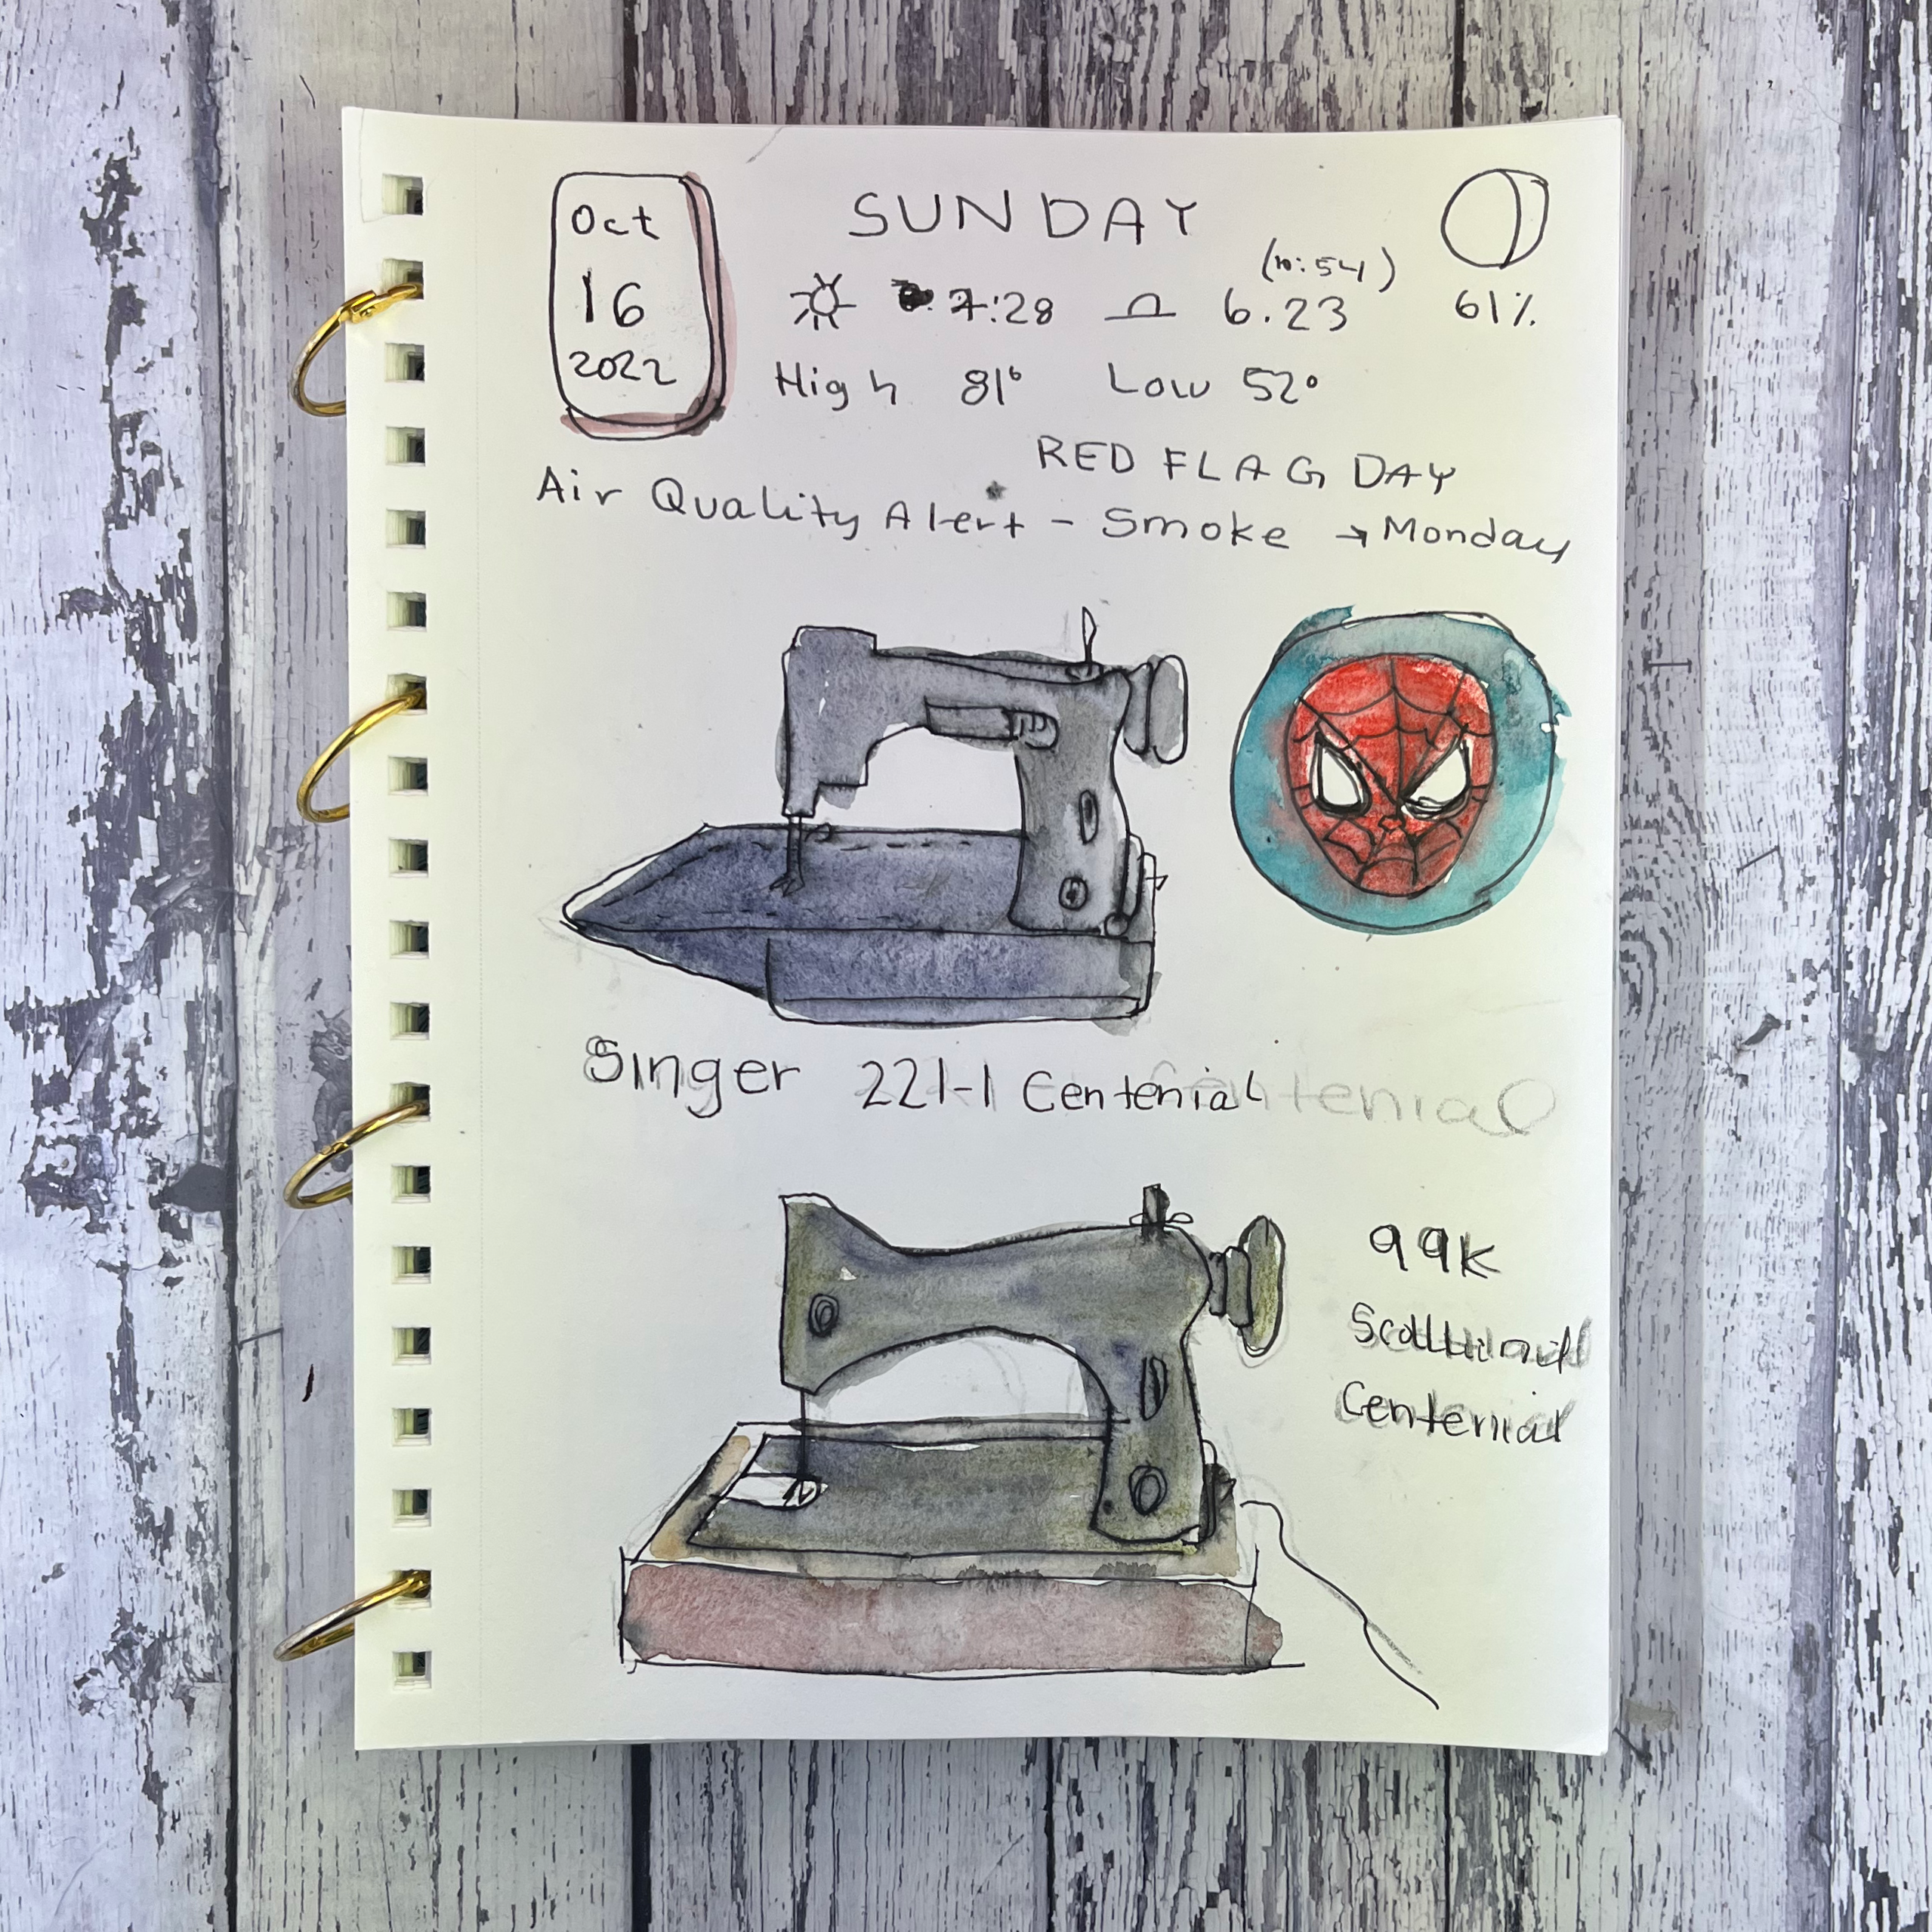 Oct
16
2022
SUNDAY
7:28
6.23
(10:54)
61%
High 81° Low 52°
RED FLAG DAY
Air Quality Alert - Smoke → Monday
Singer 221-1 Centenial
99K
Centenial